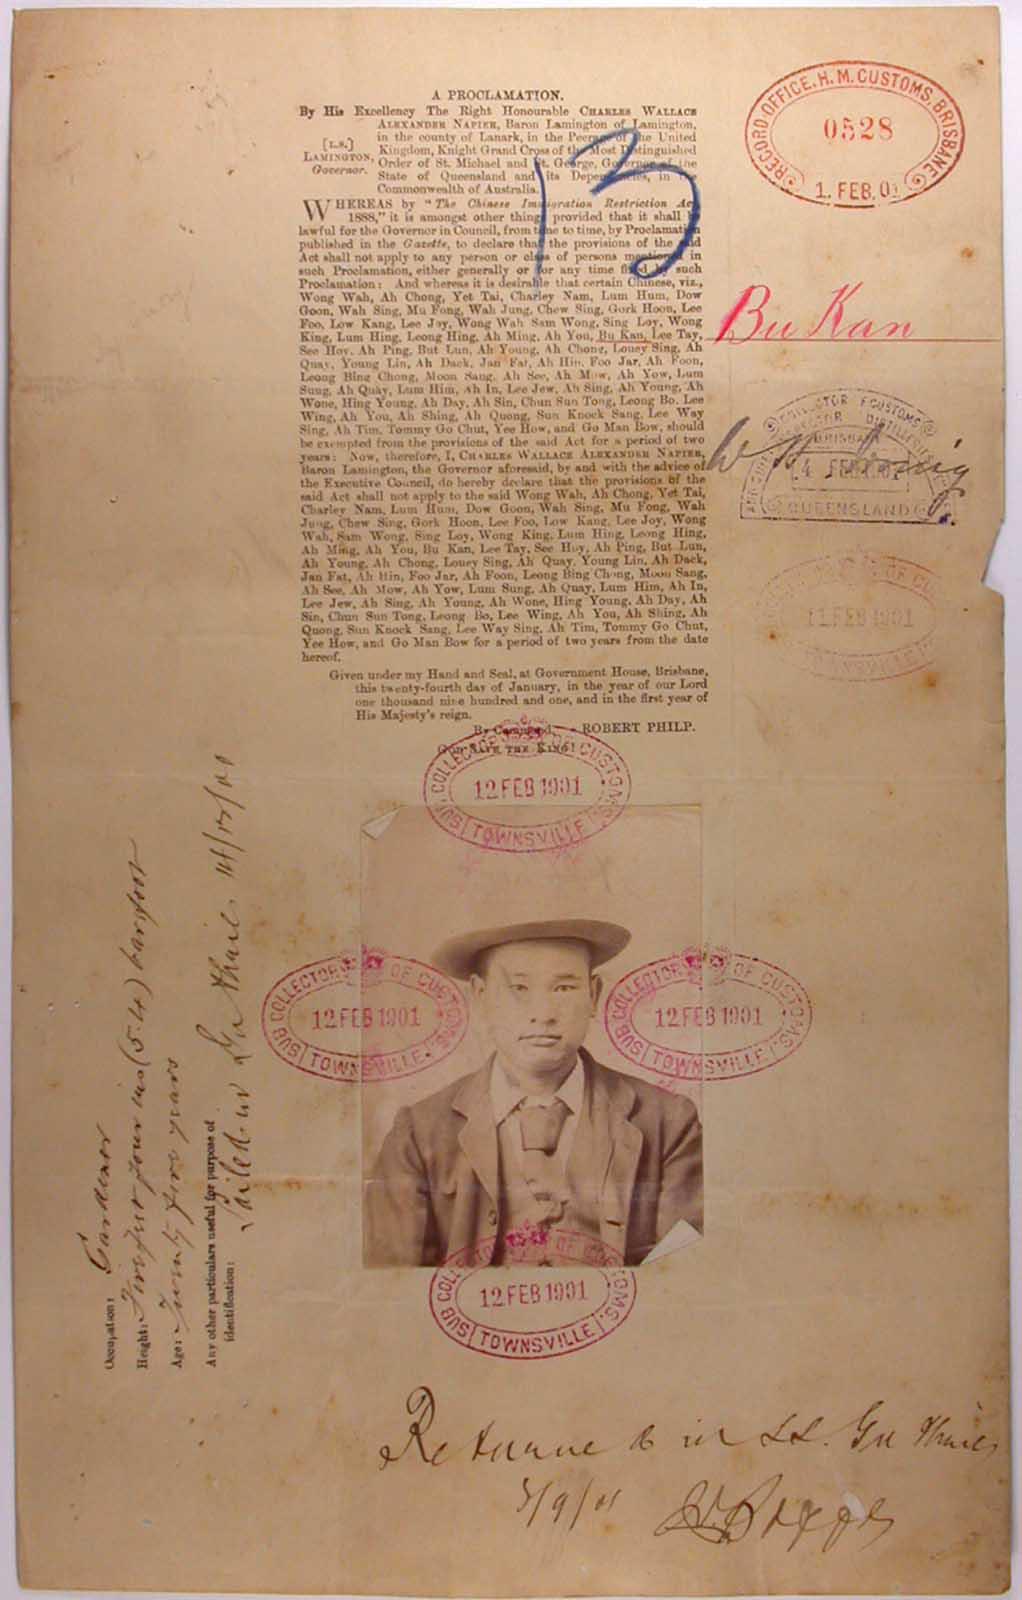 A PROCLAMATION.
By His Excellency The Right Honourable CHARLES WALLACE
ALEXANDER NAPIER, Baron Lamington of Lamington,
in the county of Lanark, in the Peerage of the United
[L.S.] Kingdom, Knight Grand Cross of the Most Distinguished
LAMINGTON, Order of St. Michael and St. George, Governor of the
Governor. State of Queensland and its Dependencies, in the
Commonwealth of Australia.
WHEREAS by "The Chinese Immigration Restriction Act
1888," it is amongst other things provided that it shall be
lawful for the Governor in Council, from time to time, by Proclamation
published in the Gazette, to declare that the provisions of the said
Act shall not apply to any person or class of persons mentioned in
such Proclamation, either generally or for any time fixed by such
Proclamation: And whereas it is desirable that certain Chinese, viz.,
Wong Wah, Ah Chong, Yet Tai, Charley Nam, Lum Hum, Dow
Goon, Wah Sing, Mu Fong, Wah Jung, Chew Sing, Gork Hoon, Lee
Foo, Low Kang, Lee Joy, Wong Wah Sam Wong, Sing Loy, Wong
King, Lum Hing, Leong Hing, Ah Ming, Ah You, Bu Kan, Lee Tay,
See Hoy, Ah Ping, But Lun, Ah Young, Ah Chong, Louey Sing, Ah
Quay, Young Lin, Ah Dack, Jan Fat, Ah Hin, Foo Jar, Ah Foon,
Leong Bing Chong, Moon Sang, Ah See, Ah Mow, Ah Yow, Lum
Sung, Ah Quay, Lum Him, Ah In, Lee Jew, Ah Sing, Ah Young, Ah
Wone, Hing Young, Ah Day, Ah Sin, Chun Sun Tong, Leong Bo, Lee
Wing, Ah You, Ah Shing, Ah Quong, Sun Knock Sang, Lee Way
Sing, Ah Tim, Tommy Go Chut, Yee How, and Go Man Bow, should
be exempted from the provisions of the said Act for a period of two
years: Now, therefore, I, CHARLES WALLACE ALEXANDER NAPIER,
Baron Lamington, the Governor aforesaid, by and with the advice of
the Executive Council, do hereby declare that the provisions of the
said Act shall not apply to the said Wong Wah, Ah Chong, Yet Tai,
Charley Nam, Lum Hum, Dow Goon, Wah Sing, Mu Fong, Wah
Jung, Chew Sing, Gork Hoon, Lee Foo, Low Kang, Lee Joy, Wong
Wah, Sam Wong, Sing Loy, Wong King, Lum Hing, Leong Hing,
Ah Ming, Ah You, Bu Kan, Lee Tay, See Hoy, Ah Ping, But Lun,
Ah Young, Ah Chong, Louey Sing, Ah Quay, Young Lin, Ah Dack,
Jan Fat, Ah Hin, Foo Jar, Ah Foon, Leong Bing Chong, Moon Sang,
Ah See, Ah Mow, Ah Yow, Lum Sung, Ah Quay, Lum Him, Ah In,
Lee Jew, Ah Sing, Ah Young, Ah Wone, Hing Young, Ah Day, Ah
Sin, Chun Sun Tong, Leong Bo, Lee Wing, Ah You, Ah Shing, Ah
Quong, Sun Knock Sang, Lee Way Sing, Ah Tim, Tommy Go Chut,
Yee How, and Go Man Bow for a period of two years from the date
hereof.
Given under my Hand and Seal, at Government House, Brisbane,
this twenty-fourth day of January, in the year of our Lord
one thousand nine hundred and one, and in the first year of
His Majesty's reign.
By Command, ROBERT PHILP.
GOD SAVE THE KING!
13
RECORD OFFICE. H.M. CUSTOMS. BRISBANE
0528
1. FEB. 01
Bu Kan
COLLECTOR OF CUSTOMS
BRISBANE
4 FEB 1901
QUEENSLAND
COLLECTOR OF CUSTOMS
11 FEB 1901
TOWNSVILLE
SUB COLLECTOR OF CUSTOMS.
12 FEB 1901
TOWNSVILLE
SUB COLLECTOR OF CUSTOMS.
12 FEB 1901
TOWNSVILLE
SUB COLLECTOR OF CUSTOMS.
12 FEB 1901
TOWNSVILLE
SUB COLLECTOR OF CUSTOMS.
12 FEB 1901
TOWNSVILLE
Occupation: Gardener
Height: Five feet four ins (5.4) barefoot
Age: Twenty five years
Any other particulars useful for purpose of
identification:
Sailed in
Returned in
3/9/01